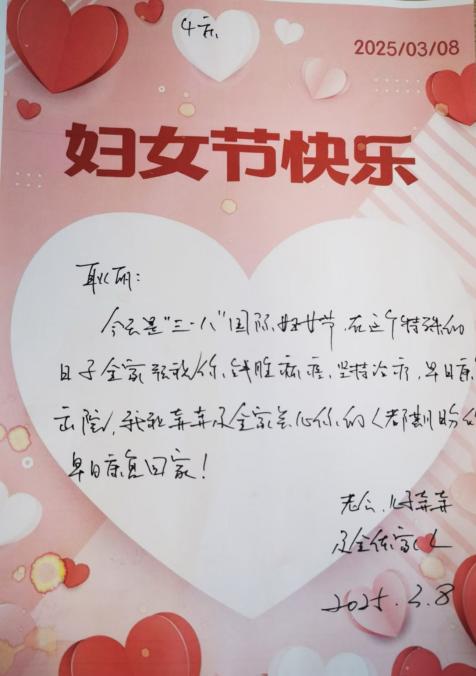 4床
2025/03/08
妇女节快乐
耿丽:
今天是"三·八"国际妇女节,在这个特殊的
日子全家祝我你,战胜病痛,坚持治疗,早日康
出院,我和弄弄及全家关心你的人都期盼你
早日康复回家!
老公、儿子弄弄
及全体家人
2025.3.8